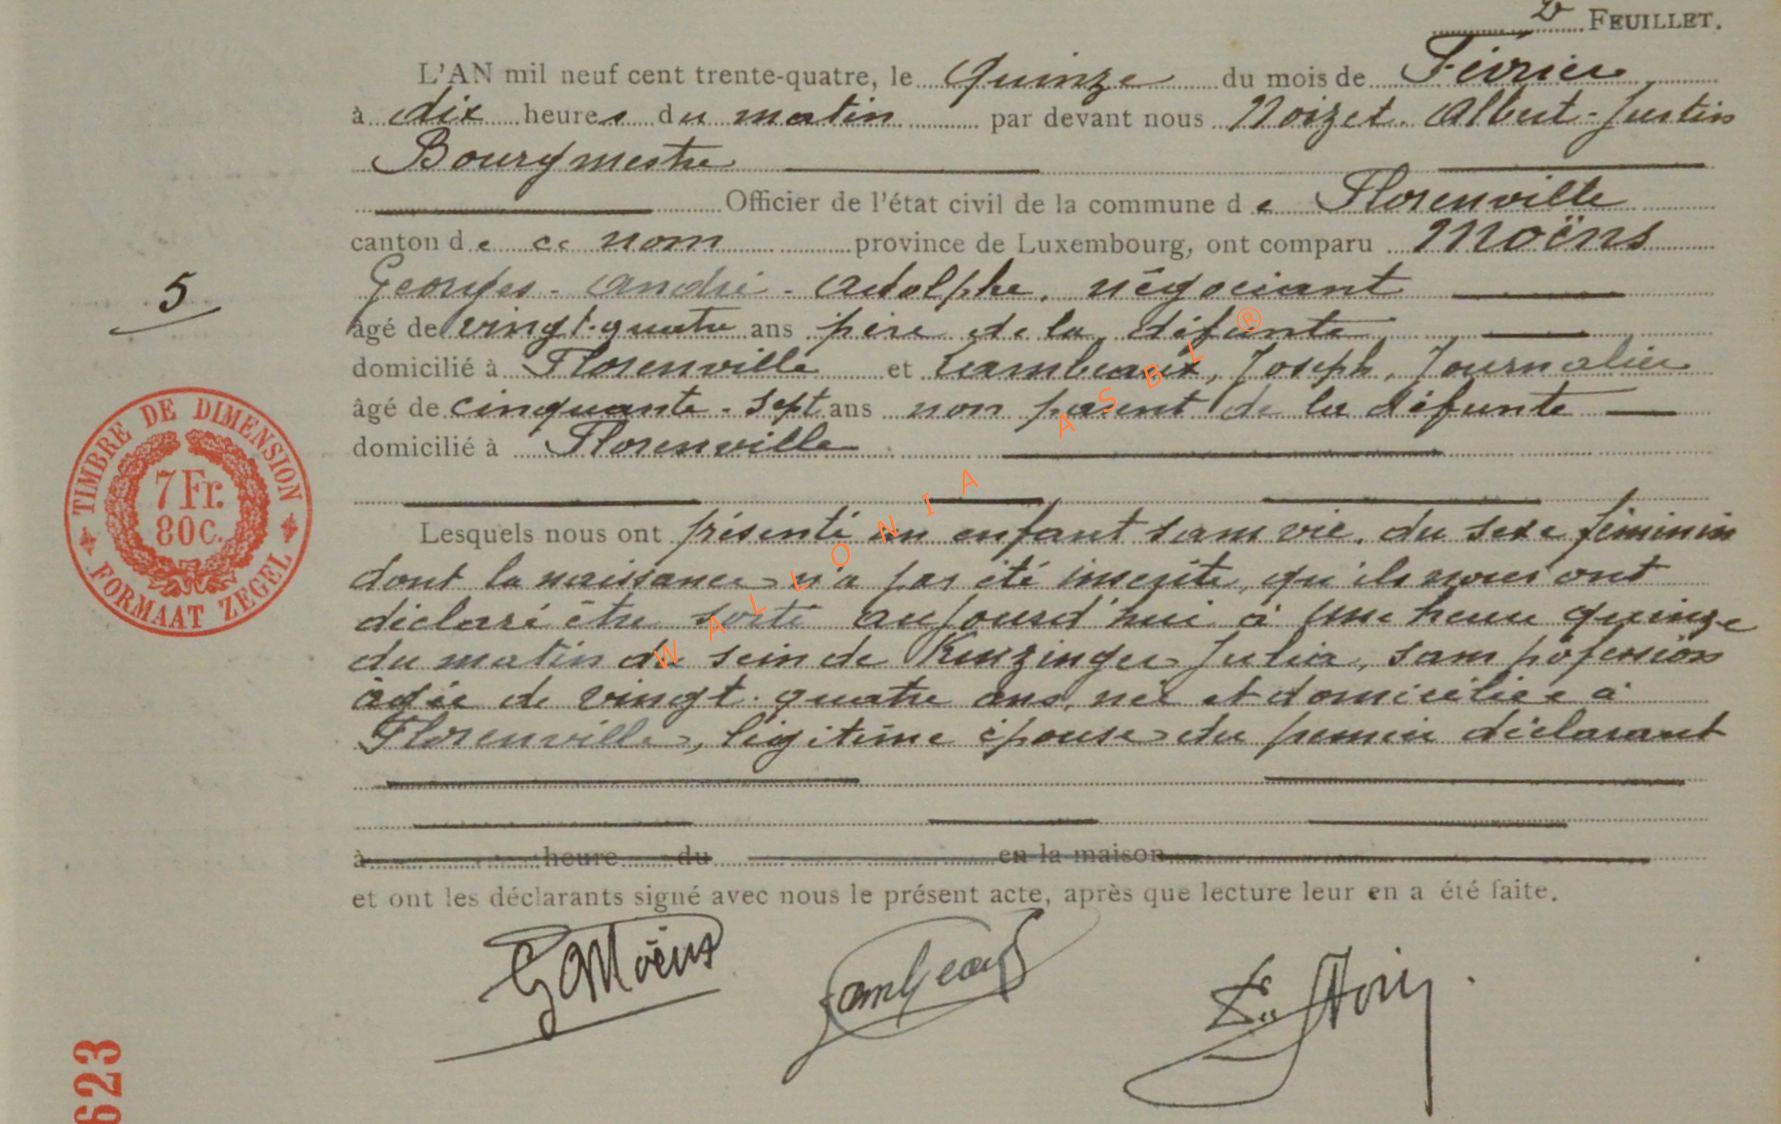 2e FEUILLET.
L'AN mil neuf cent trente-quatre, le quinze du mois de Février
à dix heures du matin par devant nous Noizet Albert-Justin
Bourgmestre
Officier de l'état civil de la commune de Florenville
canton de ce nom province de Luxembourg, ont comparu Moëns
Georges-André-Adolphe, négociant
âgé de vingt-quatre ans père de la défunte
domicilié à Florenville et Lambeaux, Joseph, Journalier
âgé de cinquante-sept ans non parent de la défunte
domicilié à Florenville
5
TIMBRE DE DIMENSION
7 Fr.
80c.
FORMAAT ZEGEL
Lesquels nous ont présenté un enfant sans vie, du sexe féminin
dont la naissance n'a pas été inscrite, qu'ils nous ont
déclaré être sorti aujourd'hui à une heure quinze
du matin du sein de Kinzinger Julia, sans pofession
âgée de vingt-quatre ans, née et domiciliée à
Florenville, légitime épouse du premier déclarant
à heure du en la maison
et ont les déclarants signé avec nous le présent acte, après que lecture leur en a été faite.
GAMoëns Lambeaux
623
WALLONIA ASBL ®